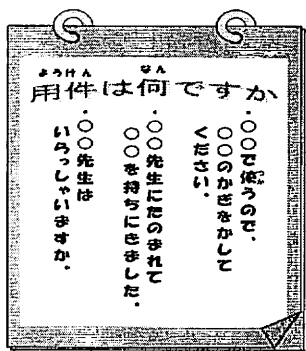 用件は何ですか
・○○で使うので、
○○のかぎをかして
ください。
・○○先生にたのまれて
○○を持ちにきました。
・○○先生は
いらっしゃいますか。